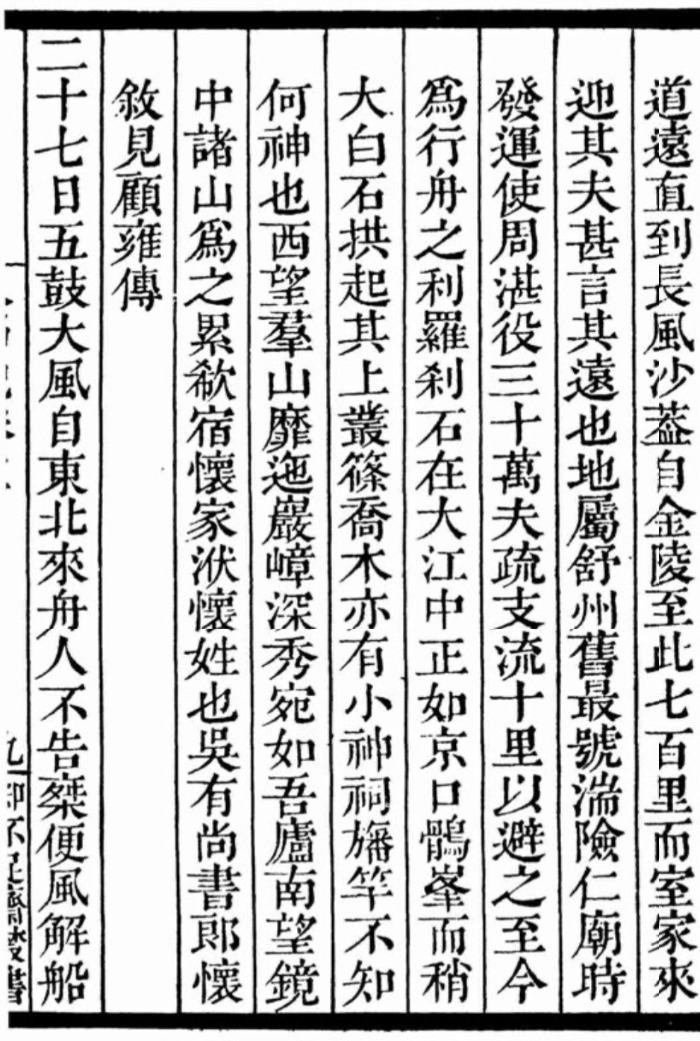 道遠直到長風沙葢自金陵至此七百里而室家來
迎其夫甚言其遠也地屬舒州舊最號湍險仁廟時
發運使周湛役三十萬夫疏支流十里以避之至今
爲行舟之利羅刹石在大江中正如京口鶻峯而稍
大白石拱起其上叢篠喬木亦有小神祠旛竿不知
何神也西望羣山靡迤巖嶂深秀宛如吾廬南望鏡
中諸山爲之累欷宿懷家洑懷姓也吳有尚書郞懷
敘見顧雍傳
二十七日五鼓大風自東北來舟人不告椉便風解船
九 知不足齋叢書